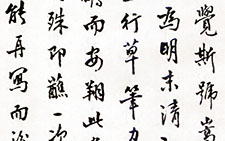 覺斯號嵩
為明末清
工行草筆力
而安翔此
殊即蘸一次
能再寫而